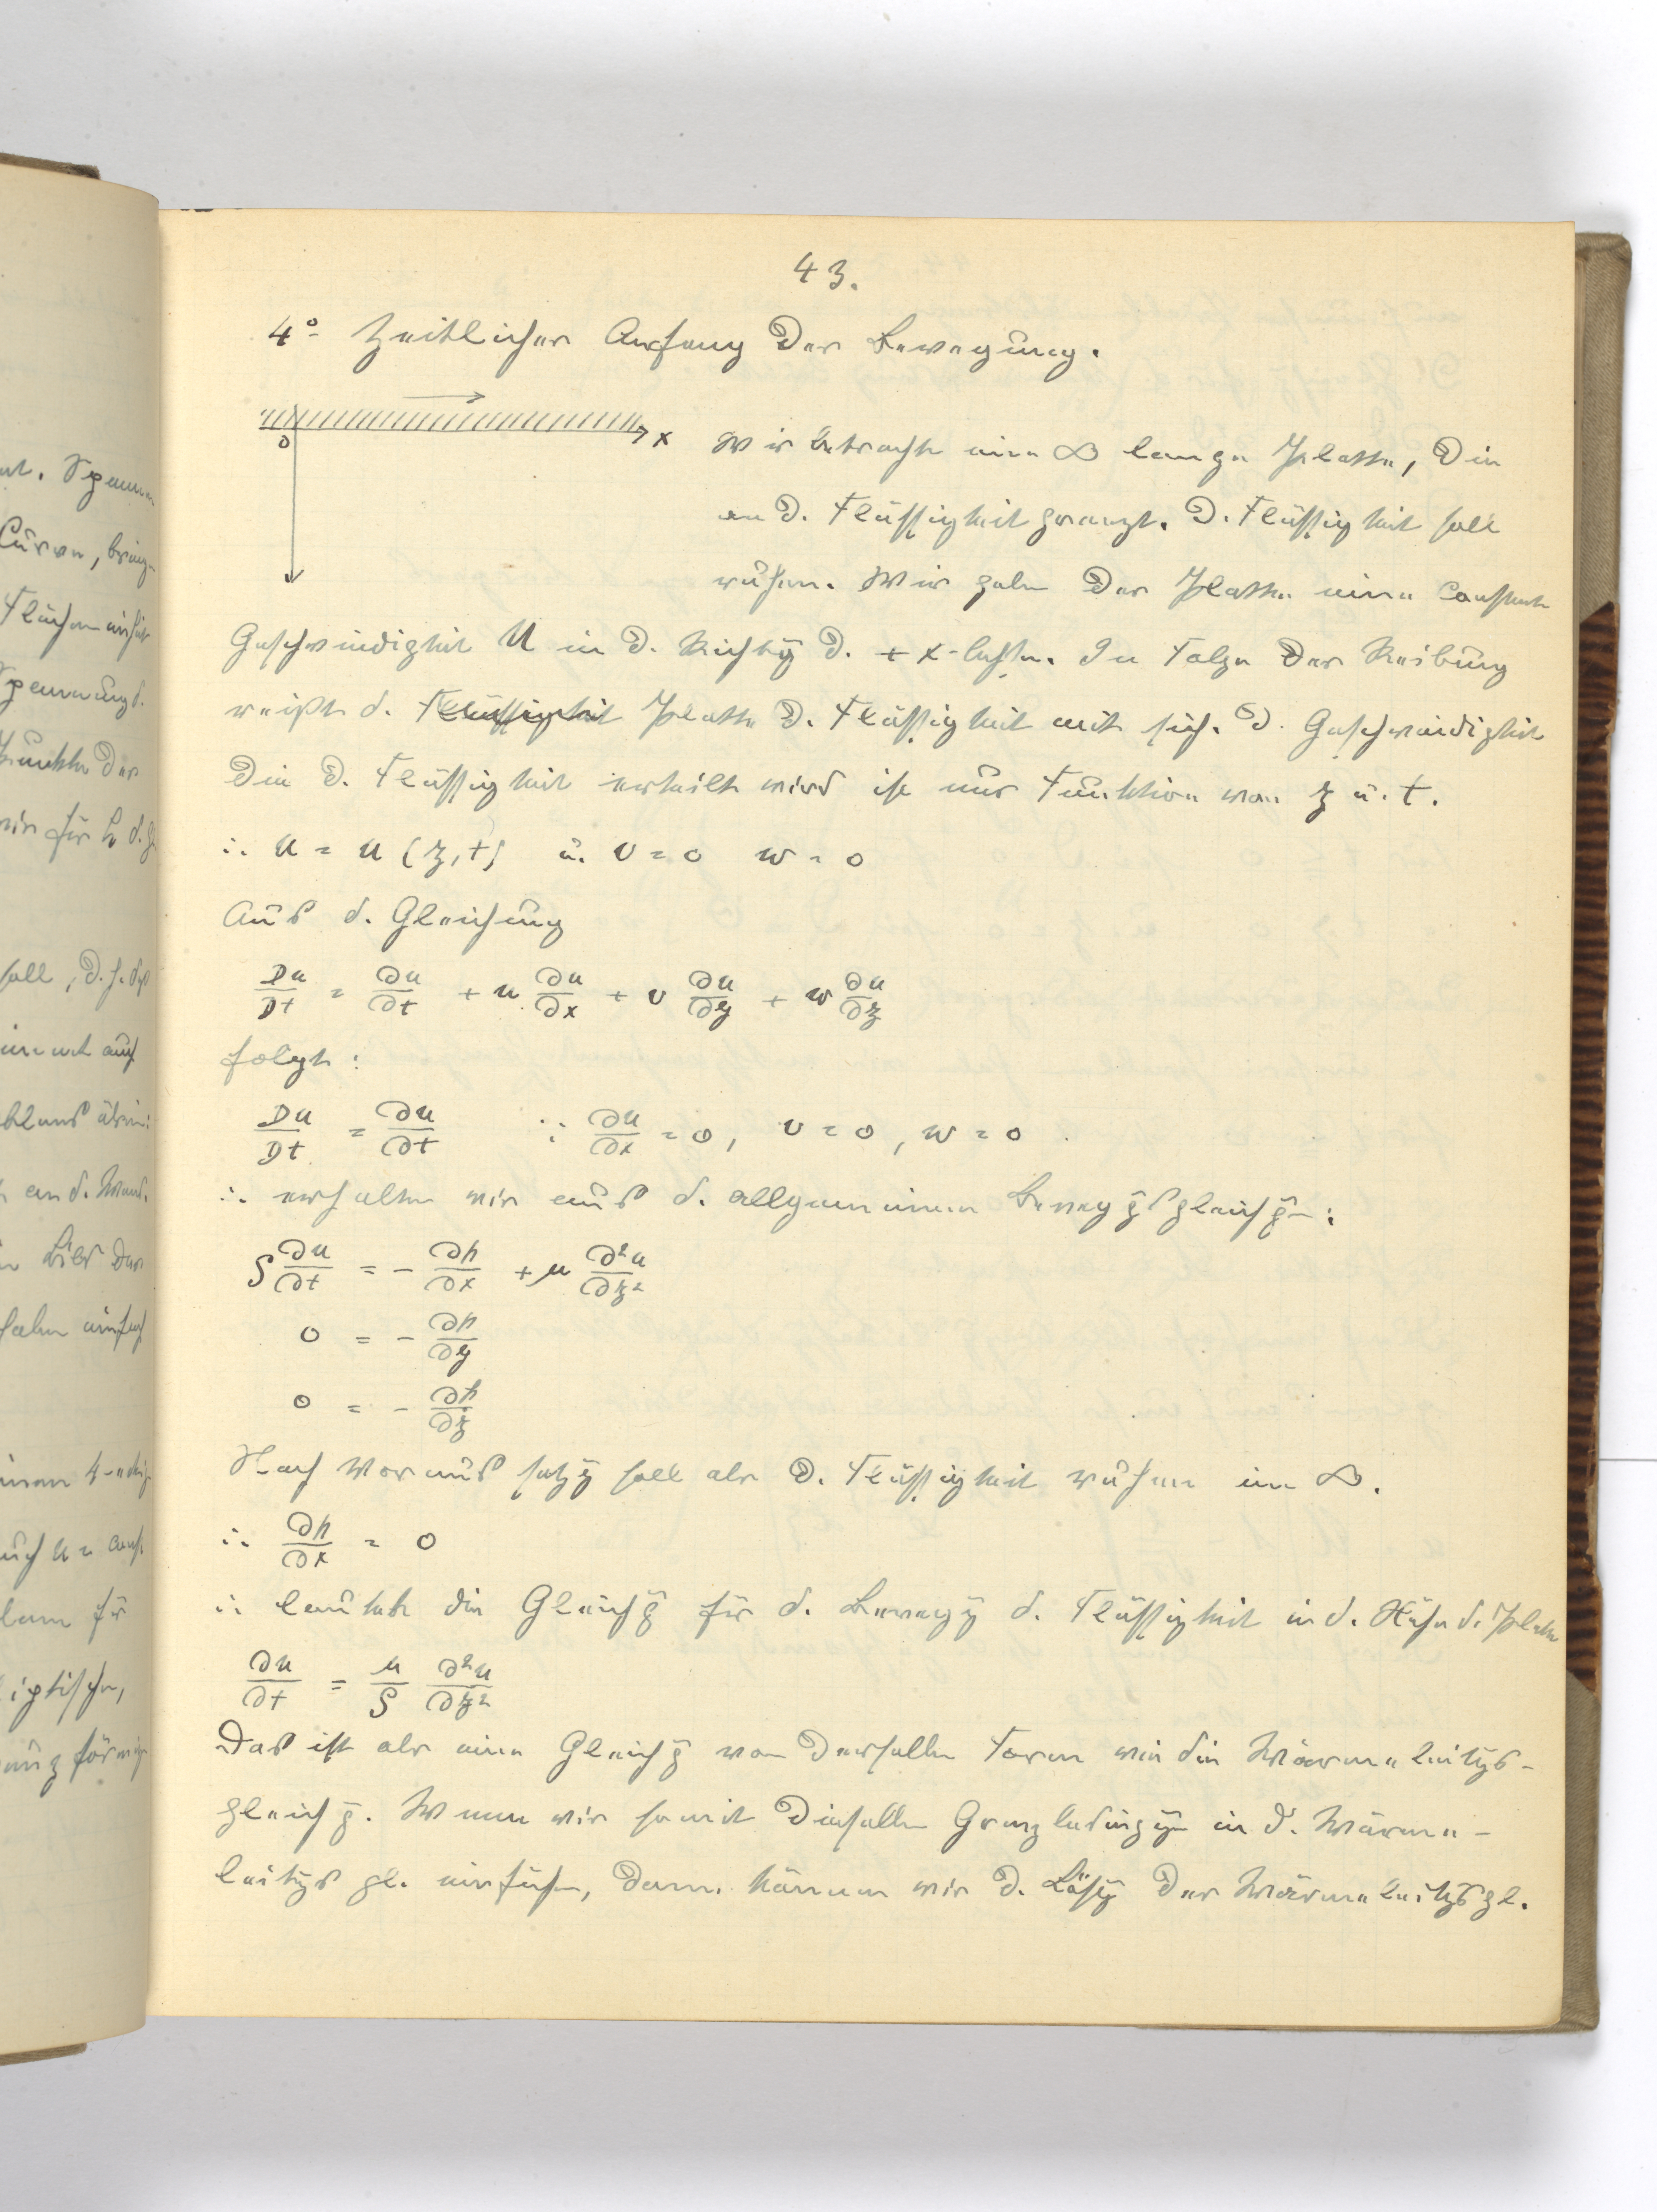 43.
4° Zeitlicher Anfang der Bewegung.
0
x
Wir betracht eine ∞ lange Platte, die
an d. Flüssigkeit grenzt. D. Flüssigkeit soll
ruhen. Wir geben der Platte eine constante
Geschwindigkeit U in d. Richtg d. + x-Achse. In Folge der Reibung
reißt d. Flüssigkeit Platte d. Flüssigkeit mit sich. D. Geschwindigkeit
die d. Flüssigkeit erteilt wird ist nur Funktion von z u. t.
∴ u = u (z, t) u. v = 0 w = 0
Aus d. Gleichung
Du/Dt = ∂u/∂t + u ∂u/∂x + v ∂u/∂y + w ∂u/∂z
folgt:
Du/Dt = ∂u/∂t ∵ ∂u/∂x = 0, v = 0, w = 0
∴ erhalten wir aus d. allgemeinen Bewegg̅sgleichg̅-:
ρ ∂u/∂t = - ∂p/∂x + μ ∂²u/∂z²
0 = - ∂p/∂y
0 = - ∂p/∂z
Nach Voraussetzg̅ soll aber d. Flüssigkeit ruhen im ∞.
∴ ∂p/∂x = 0
∴ lautet die Gleichg̅ für d. Bewegg̅ d. Flüssigkeit in d. Nähe d. Platte
∂u/∂t = μ/ρ ∂²u/∂z²
Das ist aber eine Gleichg̅ von derselben Form wie die Wärmeleitgs-
gleichg̅. Wenn wir somit dieselben Grenzbedingg̅- in d. Wärme-
leitgs gl. einführ-, dann können wir d. Lösg̅ der Wärmeleitgsgl.
ut. Spannu
Curven, bring-
Flächen
Spannungs.
Punkte der
wir für
soll, d.h. daß
auf
an d. Wand.
Bild der
haben einfach
einen
auch u = const.
für
iptischen,
förmig